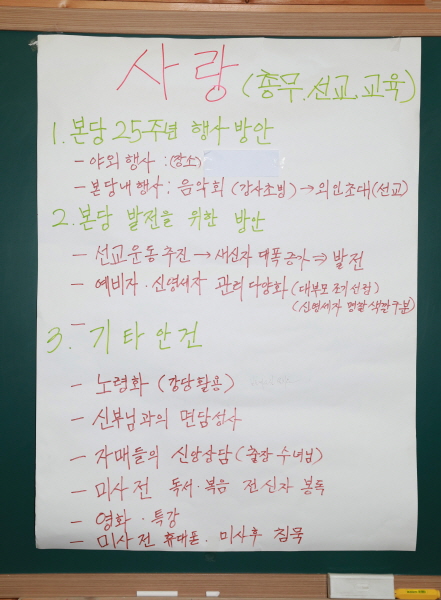 사랑 (총무.선교.교육)
1. 본당 25주년 행사 방안
- 야외 행사 : (장소)
- 본당내 행사 : 음악회 (강사초빙) → 의인초대 (선교)
2. 본당 발전을 위한 방안
- 선교운동 추진 → 새신자 대폭 증가 ⇒ 발전
- 예비자 · 신영세자 관리 다양화 (대부모 조기 선정)
(신영세자 명찰 색깔 구분)
-
3. 기타 안건
- 노령화 (강당활용)
- 신부님과의 면담성사
- 자매들의 신앙상담 (출장 수녀님)
- 미사 전 독서 · 복음 전 신자 봉독
- 영화 · 특강
- 미사 전 휴대폰 · 미사후 침묵